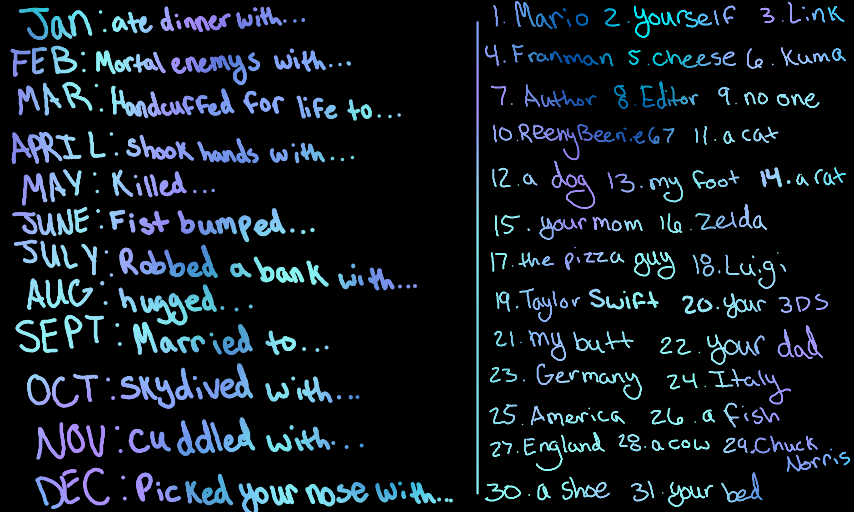 JAN: ate dinner with...
FEB: Mortal enemys with...
MAR: Handcuffed for life to...
APRIL: shook hands with...
MAY: Killed...
JUNE: Fist bumped...
JULY: Robbed a bank with...
AUG: hugged...
SEPT: Married to...
OCT: skydived with...
NOV: cuddled with...
DEC: Picked your nose with...
1. Mario 2. yourself 3. Link
4. Franman 5. cheese 6. Kuma
7. Author 8. Editor 9. no one
10. RBenyBeenie67 11. a cat
12. a dog 13. my foot 14. a rat
15. your mom 16. Zelda
17. the pizza guy 18. Luigi
19. Taylor Swift 20. your 3DS
21. my butt 22. your dad
23. Germany 24. Italy
25. America 26. a fish
27. England 28. a cow 29. Chuck
Norris
30. a shoe 31. your bed